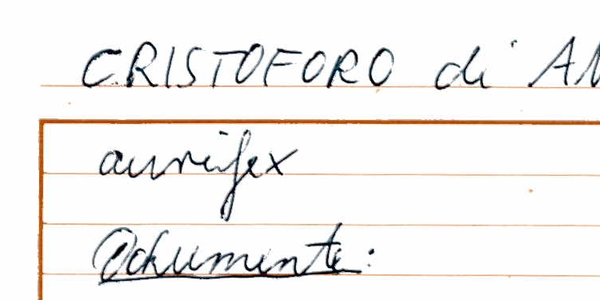 CRISTOFORO di AN
aurifex
Dokumente: